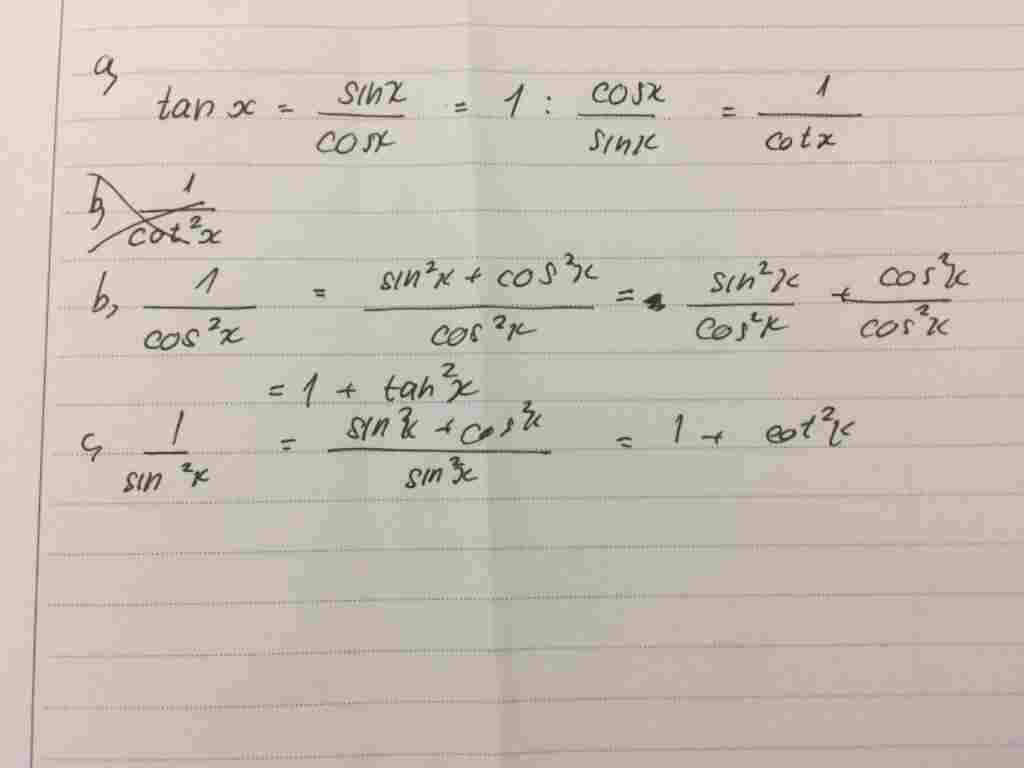 a,
tan x = sinx/cosx = 1 : cosx/sinx = 1/cotx
b, 1/cot²x
b, 1/cos²x = (sin²x + cos²x)/cos²x = sin²x/cos²x + cos²x/cos²x
= 1 + tan²x
c, 1/sin²x = (sin²x + cos²x)/sin²x = 1 + cot²x